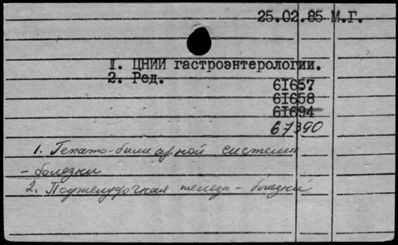 25.02.85 М.Г.
1. ЦНИИ гастроэнтерологии.
2. Ред.
61657
61658
61694
67390
1. Гепато-билиарной системы
- болезни
2. Поджелудочная железа - болезни